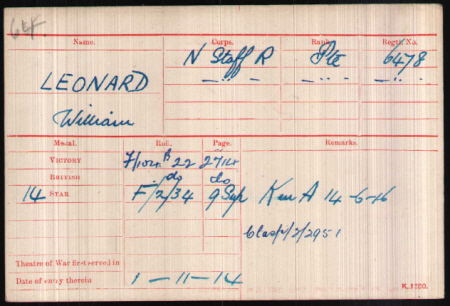 Name. Corps. Rank. Regtl. No.
LEONARD N Staff R Pte 6478
William
Medal. Roll. Page. Remarks.
VICTORY B 22
BRITISH do do
14 STAR F/2/34 9 Sup Ken A 14-6-46
Clasp/2/2951
Theatre of War first served in
Date of entry therein 1-11-14
K.1380.